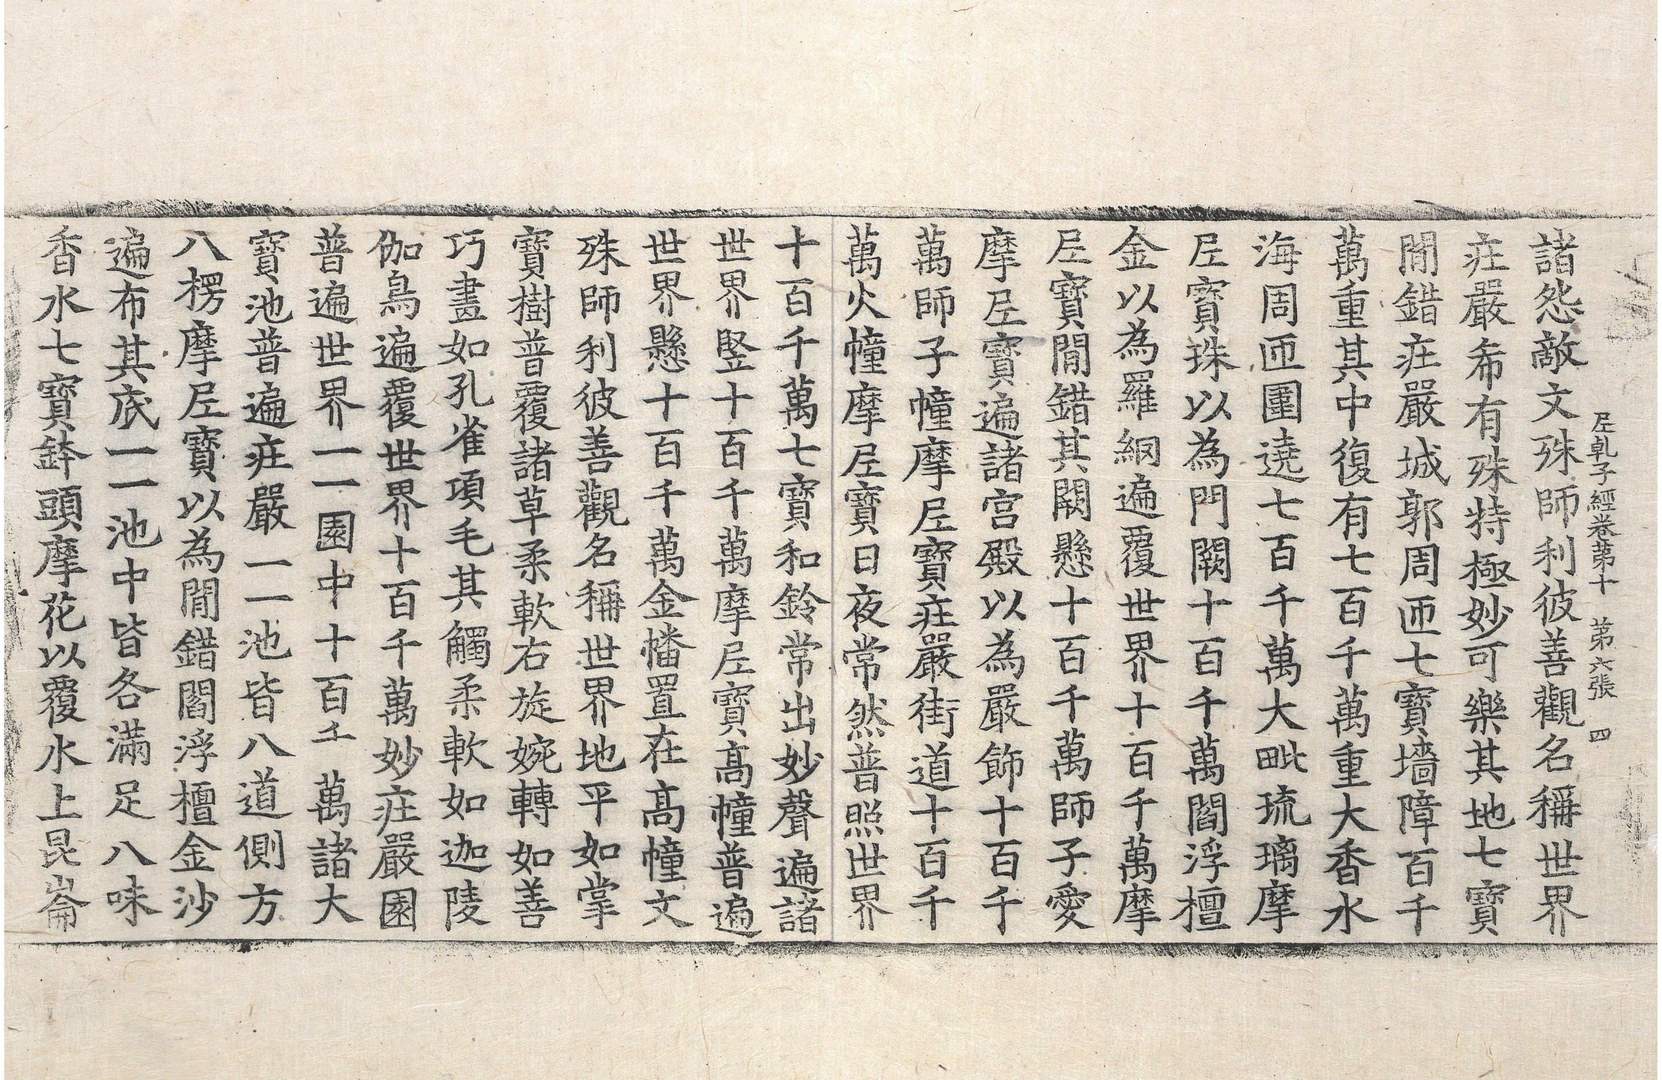 尼乹子經卷第十　第六張　四
諸怨敵文殊師利彼善觀名稱世界
莊嚴希有殊特極妙可樂其地七寶
閒錯莊嚴城郭周匝七寶墻障百千
萬重其中復有七百千萬重大香水
海周匝圍遶七百千萬大毗琉璃摩
尼寶珠以為門闕十百千萬閻浮檀
金以為羅網遍覆世界十百千萬摩
尼寶閒錯其闕懸十百千萬師子愛
摩尼寶遍諸宮殿以為嚴飾十百千
萬師子幢摩尼寶莊嚴街道十百千
萬火幢摩尼寶日夜常然普照世界
十百千萬七寶和鈴常出妙聲遍諸
世界竪十百千萬摩尼寶高幢普遍
世界懸十百千萬金幡置在高幢文
殊師利彼善觀名稱世界地平如掌
寶樹普覆諸草柔軟右旋婉轉如善
巧畫如孔雀項毛其觸柔軟如迦陵
伽鳥遍覆世界十百千萬妙莊嚴園
普遍世界一一園中十百千萬諸大
寶池普遍莊嚴一一池皆八道側方
八楞摩尼寶以為閒錯閻浮檀金沙
遍布其底一一池中皆各滿足八味
香水七寶鉢頭摩花以覆水上昆崙